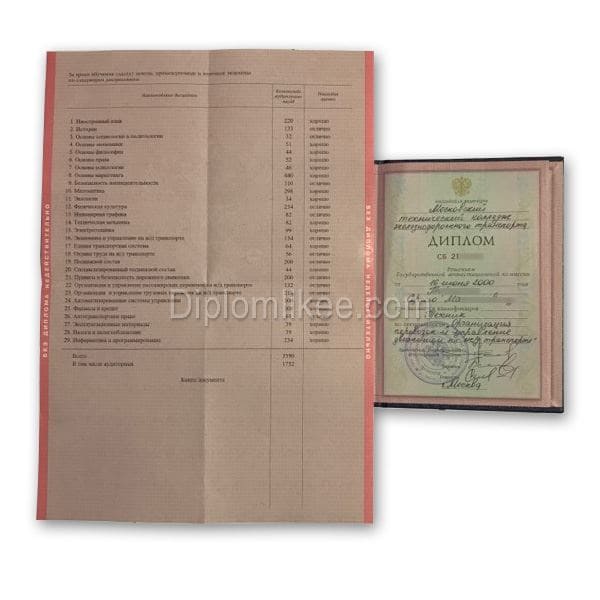 За время обучения сдал(а) зачеты, промежуточные и итоговые экзамены
по следующим дисциплинам:
Наименование дисциплин
Количество
аудиторных
часов
Итоговая
оценка
1. Иностранный язык 220 хорошо
2. История 133 отлично
3. Основы социологии и политологии 32 отлично
4. Основы экономики 51 хорошо
5. Основы философии 44 хорошо
6. Основы права 52 хорошо
7. Основы психологии 46 хорошо
8. Основы маркетинга 440 хорошо
9. Безопасность жизнедеятельности 110 отлично
10. Математика 298 хорошо
11. Экология 34 хорошо
12. Физическая культура 234 отлично
13. Инженерная графика 82 отлично
14. Техническая механика 82 хорошо
15. Электротехника 99 хорошо
16. Экономика и управление на ж/д транспорте 134 отлично
17. Единая транспортная система 64 хорошо
18. Охрана труда на ж/д транспорте 56 отлично
19. Подвижной состав 200 хорошо
20. Специализированный подвижной состав 44 хорошо
21. Правила и безопасность дорожного движения 200 хорошо
22. Организация и управление пассажирских перевозок на ж/д 132 отлично
23. Организация и управление грузовых на ж/д транспорте хорошо
24. Автоматизированные системы управления 200 хорошо
25. Финансы и кредит
26. Автотранспортное право хорошо
27. Эксплуатационные материалы 39 хорошо
28. Налоги и налогообложение 39 хорошо
29. Информатика и программирование 234 хорошо
Всего 3590
В том числе аудиторных 1752
Конец документа
БЕЗ ДИПЛОМА НЕДЕЙСТВИТЕЛЬНО
БЕЗ ДИПЛОМА НЕДЕЙСТВИТЕЛЬНО
Diplomikee.com
Московский
технический колледж
железнодорожного транспорта
ДИПЛОМ
СБ 21
Решением
Государственной аттестационной комиссии
от 16 июня 2000 года
Техник
Организация
перевозок и управление
движением на ж/д транспорте"
г. Москва